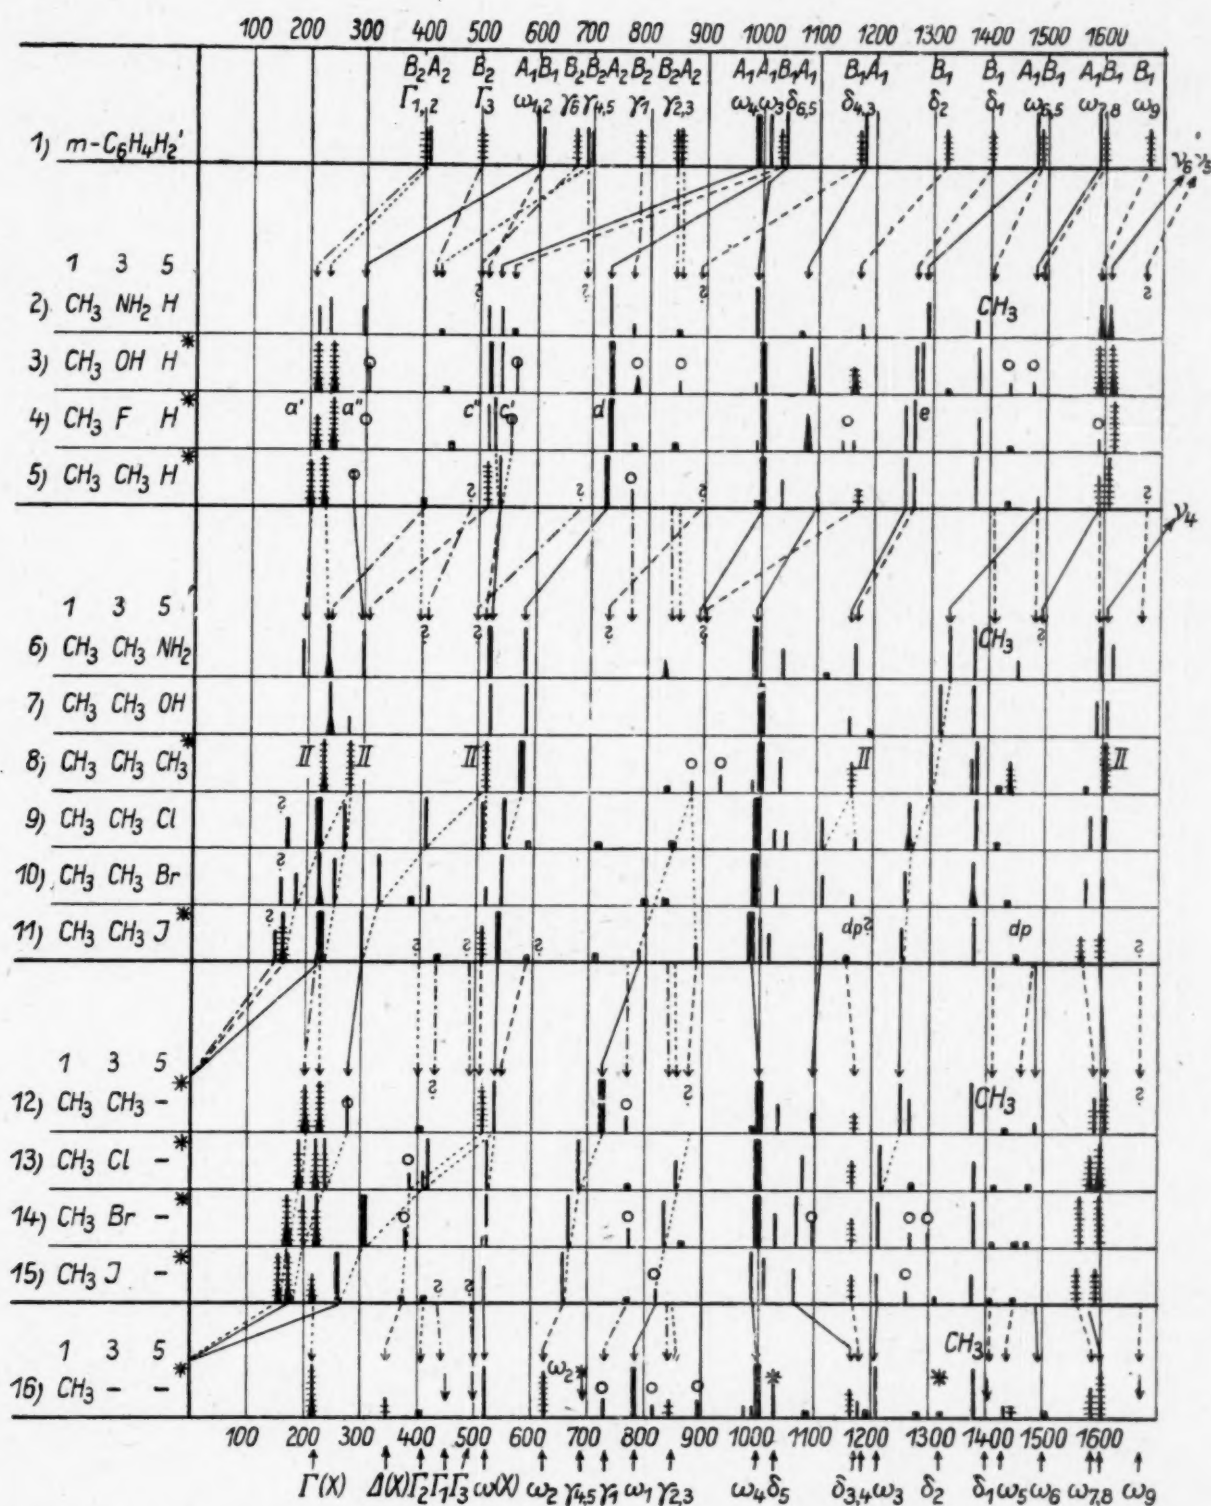 100 200 300 400 500 600 700 800 900 1000 1100 1200 1300 1400 1500 1600
B₂ A₂ B₂ A₁ B₁ B₂ B₂ A₂ B₂ B₂ A₂ A₁ A₁ B₁ A₁ B₁ A₁ B₁ B₁ A₁ B₁ A₁ B₁ B₁
Γ₁,₂ Γ₃ ω₁,₂ γ₆ γ₄,₅ γ₁ γ₂,₃ ω₄ ω₃ δ₆,₅ δ₄,₃ δ₂ δ₁ ω₆,₅ ω₇,₈ ω₉
1) m-C₆H₄H₂'
ν₆ ν₅
1 3 5
? ? ? ?
2) CH₃ NH₂ H CH₃
3) CH₃ OH H *
4) CH₃ F H a' a'' c'' c' d e
5) CH₃ CH₃ H * ? ? ? ?
ν₄
1 3 5
? ? ? ? ?
6) CH₃ CH₃ NH₂ CH₃
7) CH₃ CH₃ OH
8) CH₃ CH₃ CH₃ * II II II II II
9) CH₃ CH₃ Cl ?
10) CH₃ CH₃ Br ?
11) CH₃ CH₃ J * ? ? ? ? dp? dp ?
1 3 5
12) CH₃ CH₃ - * ? ? CH₃ ?
13) CH₃ Cl - *
14) CH₃ Br - *
15) CH₃ J - * ? ?
1 3 5 CH₃
16) CH₃ - - * ω₂* * *
100 200 300 400 500 600 700 800 900 1000 1100 1200 1300 1400 1500 1600
Γ(X) Δ(X) Γ₂ Γ₁ Γ₃ ω(X) ω₂ γ₄,₅ γ₁ ω₁ γ₂,₃ ω₄ δ₅ δ₃,₄ ω₃ δ₂ δ₁ ω₅ ω₆ ω₇,₈ ω₉